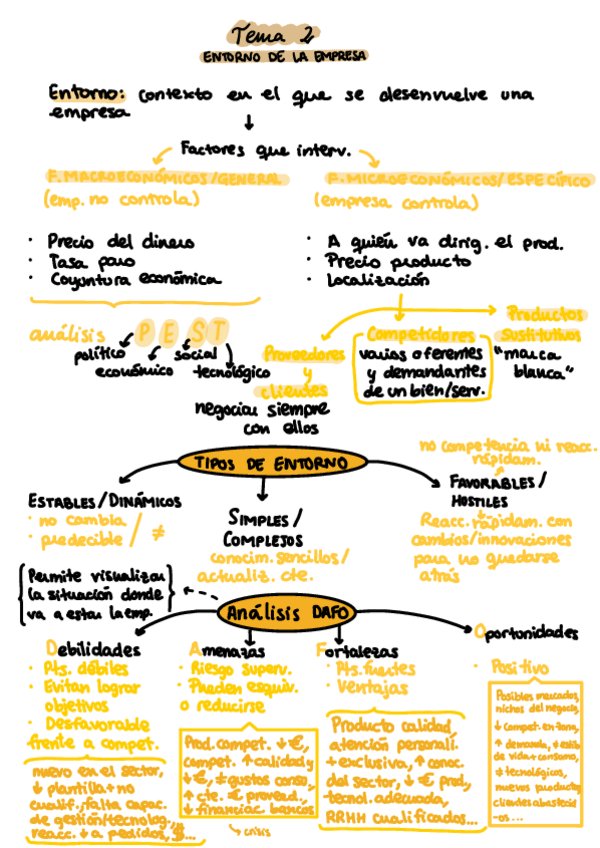 Tema 2
ENTORNO DE LA EMPRESA
Entorno: contexto en el que se desenvuelve una
empresa
↓
Factores que interv.
F. MACROECONÓMICOS/GENERAL
(emp. no controla)
· Precio del dinero
· Tasa paro
· Coyuntura económica
análisis PEST
político
económico
social
tecnológico
F. MICROECONÓMICOS/ESPECÍFICO
(empresa controla)
· A quién va dirig. el prod.
· Precio producto
· Localización
Proveedores
y
clientes
negociar siempre
con ellos
Competidores
varios oferentes
y demandantes
de un bien/serv.
Productos
Sustitutivos
"marca
blanca"
TIPOS DE ENTORNO
ESTABLES/DINÁMICOS
· no cambia /
· predecible / ≠
SIMPLES/
COMPLEJOS
conocim. sencillos/
actualiz. cte.
no competencia ni reacc.
rápidam.
FAVORABLES/
HOSTILES
Reacc. rápidam. con
cambios/innovaciones
para no quedarse
atrás
Permite visualizar
la situación donde
va a estar la emp.
Análisis DAFO
Debilidades
· Pts. débiles
· Evitan lograr
objetivos
· Desfavorable
frente a compet.
nuevo en el sector,
↓ plantilla + no
cualif., falta capac.
de gestión/tecnolog.,
reacc. ↓ a pedidos, $...
Amenazas
· Riesgo superv.
· Pueden esquiv.
o reducirse
Prod. compet. ↓ €,
compet. ↑ calidad y
↓ €, ≠ gustos consu,
↑ cte. € proveed.,
↓ financiac. bancos
↳ crisis
Fortalezas
· Pts. fuertes
· Ventajas
Producto calidad,
atención personali.
+ exclusiva, ↑ conoc.
del sector, ↓ € prod,
tecnol. adecuada,
RRHH cualificados...
Oportunidades
· Positivo
Posibles mercados,
nichos del negocio,
↓ compet. en zona,
↑ demanda, ≠ estilo
de vida + consumo,
≠ tecnológicos,
nuevos productos,
clientes abastecid
-os ...